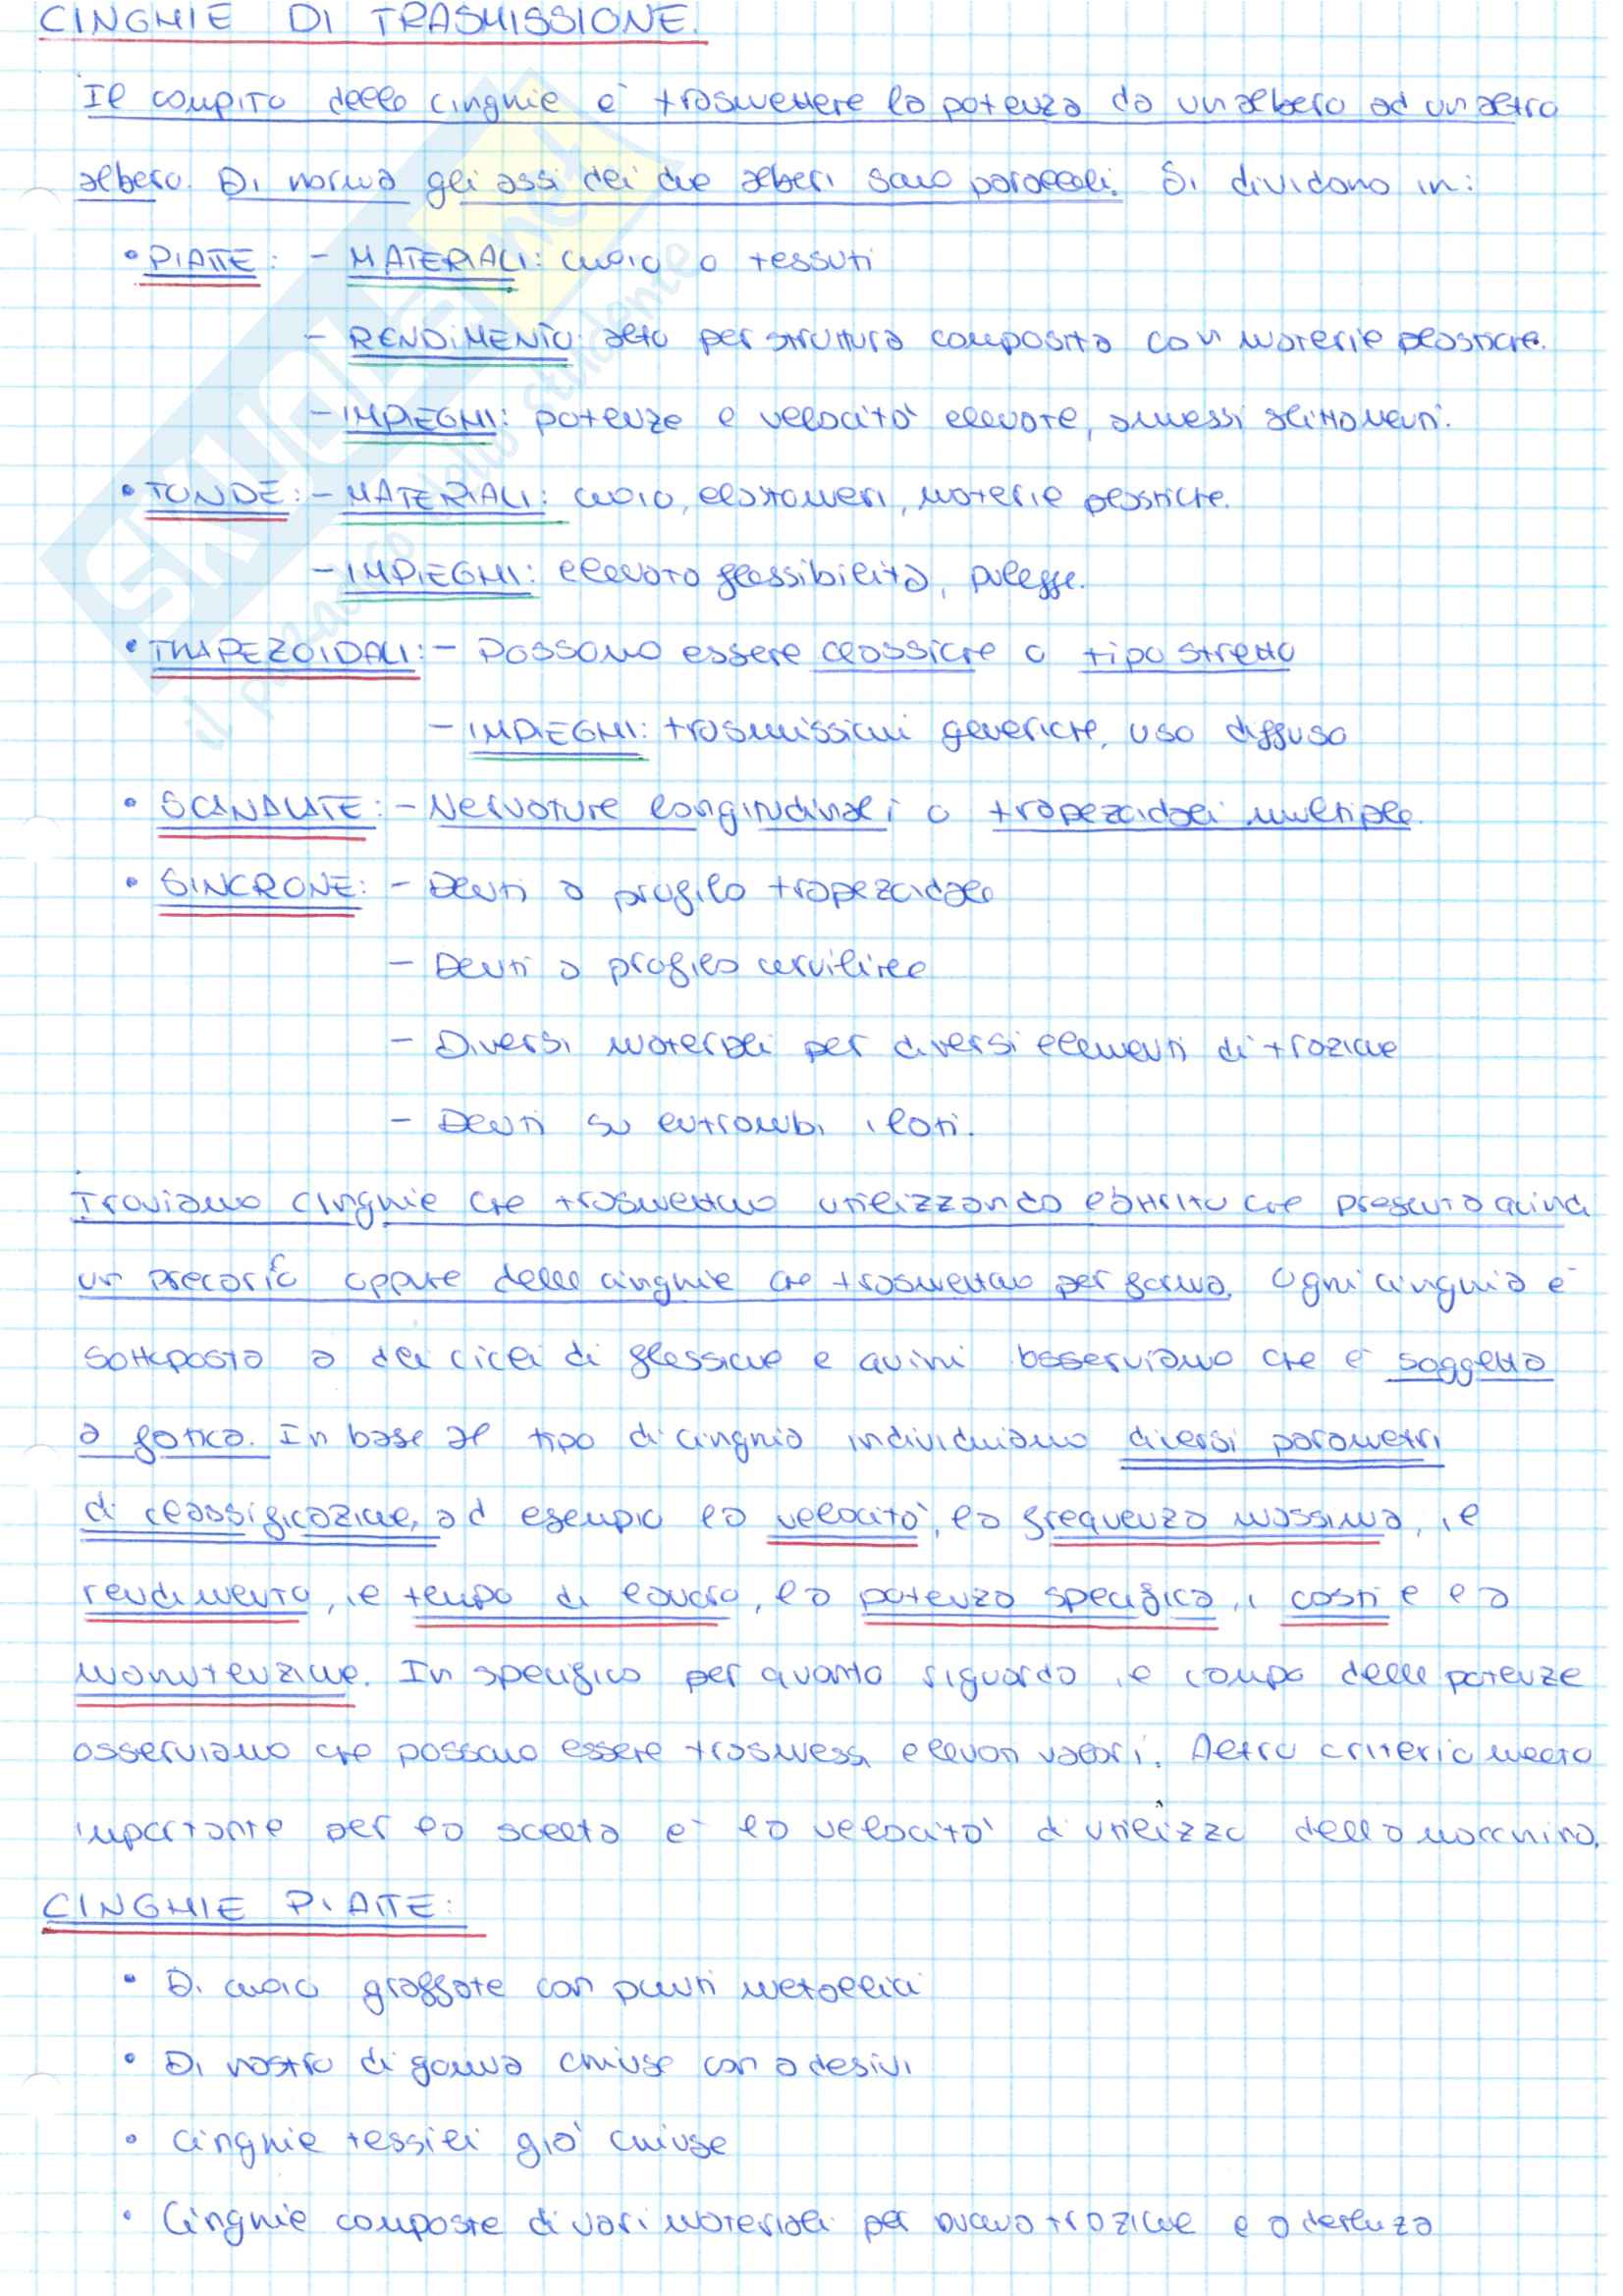 CINGHIE DI TRASMISSIONE.
Il compito delle cinghie e' trasmettere la potenza da un albero ad un altro
albero. Di norma gli assi dei due alberi sono paralleli. Si dividono in:
• PIATTE: - MATERIALI: cuoio o tessuti
- RENDIMENTO: alto per struttura composita con materie plastiche.
- IMPIEGHI: potenze e velocita' elevate, ammessi slittamenti.
• TONDE: - MATERIALI: cuoio, elastomeri, materie plastiche.
- IMPIEGHI: elevata flessibilità, pulegge.
• TRAPEZOIDALI: - Possono essere classiche o tipo stretto
- IMPIEGHI: trasmissioni generiche, uso diffuso
• SCANALATE: - Nervature longitudinali o trapezoidali multiple.
• SINCRONE: - Denti a profilo trapezoidale
- Denti a profilo curvilineo
- Diversi materiali per diversi elementi di trazione
- Denti su entrambi i lati.
Troviamo cinghie che trasmettono utilizzando l'attrito che presenta quindi
un precarico oppure delle cinghie che trasmettono per forma. Ogni cinghia e'
sottoposta a dei cicli di flessione e quindi osserviamo che e' soggetta
a fatica. In base al tipo di cinghia individuiamo diversi parametri
di classificazione, ad esempio la velocita', la frequenza massima, il
rendimento, il tempo di lavoro, la potenza specifica, i costi e la
manutenzione. In specifico per quanto riguarda il campo delle potenze
osserviamo che possono essere trasmessi elevati valori. Altro criterio molto
importante per la scelta e' la velocita' di utilizzo della macchina.
CINGHIE PIATTE:
• Di cuoio graffate con punti metallici
• Di nastro di gomma chiuse con adesivi
• Cinghie tessili gia' chiuse
• Cinghie composte di vari materiali per buona trazione e aderenza
SKUOLA.net
il paradiso dello studente